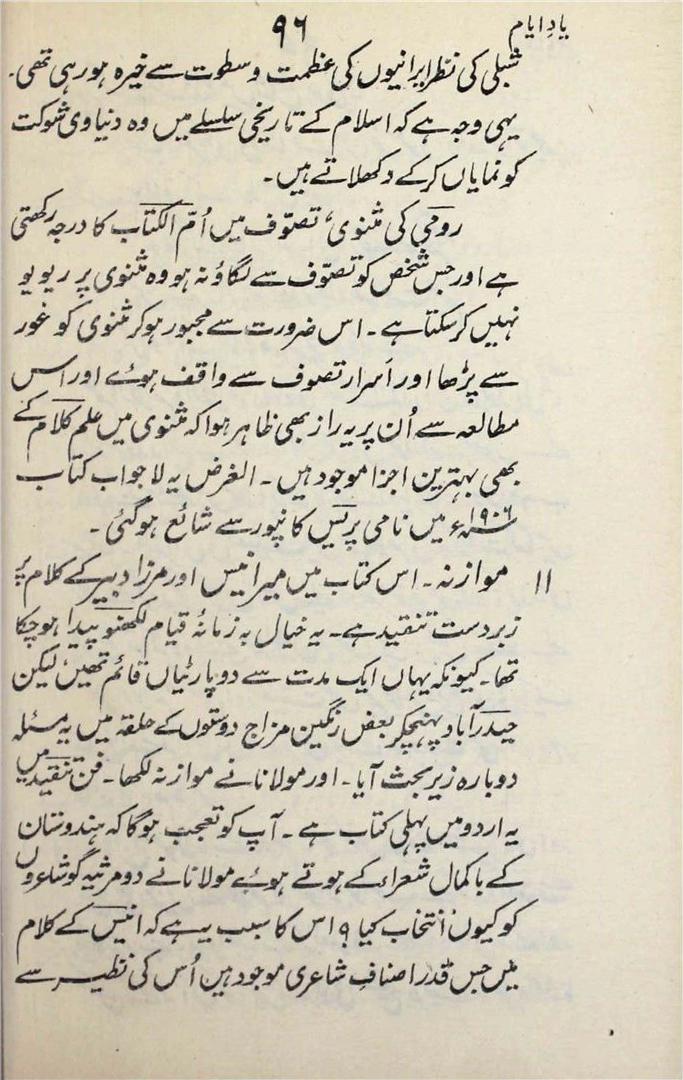 یادِ ایام
۹۶
شبلی کی نظر ایرانیوں کی عظمت و سطوت سے خیرہ ہو رہی تھی۔
یہی وجہ ہے کہ اسلام کے تاریخی سلسلے میں وہ دنیاوی شوکت
کو نمایاں کرکے دکھلاتے ہیں۔
رومی کی مثنوی، تصوّف میں اُمّ الکتاب کا درجہ رکھتی
ہے اور جس شخص کو تصوّف سے لگاؤ نہ ہو وہ مثنوی پر ریویو
نہیں کرسکتا ہے۔ اس ضرورت سے مجبور ہوکر مثنوی کو غور
سے پڑھا اور اسرار تصوف سے واقف ہوئے اور اس
مطالعہ سے اُن پر یہ راز بھی ظاہر ہوا کہ مثنوی میں علم کلام کے
بھی بہترین اجزا موجود ہیں۔ الغرض یہ لاجواب کتاب
۱۹۰۶ء میں نامی پریس کانپور سے شائع ہوگئی۔
۱۱ موازنہ۔ اس کتاب میں میر انیس اور مرزا دبیر کے کلام پر
زبردست تنقید ہے۔ یہ خیال بہ زمانۂ قیام لکھنو پیدا ہوچکا
تھا۔ کیونکہ یہاں ایک مدت سے دو پارٹیاں قائم تھیں لیکن
حیدرآباد پہنچکر بعض رنگین مزاج دوستوں کے حلقہ میں یہ مسئلہ
دوبارہ زیر بحث آیا۔ اور مولانا نے موازنہ لکھا۔ فن تنقید میں
یہ اردو میں پہلی کتاب ہے۔ آپ کو تعجب ہوگا کہ ہندوستان
کے باکمال شعراء کے ہوتے ہوئے مولانا نے دو مرثیہ گو شاعروں
کو کیوں انتخاب کیا؟ اس کا سبب یہ ہے کہ انیس کے کلام
میں جس قدر اصنافِ شاعری موجود ہیں اُس کی نظیر سے